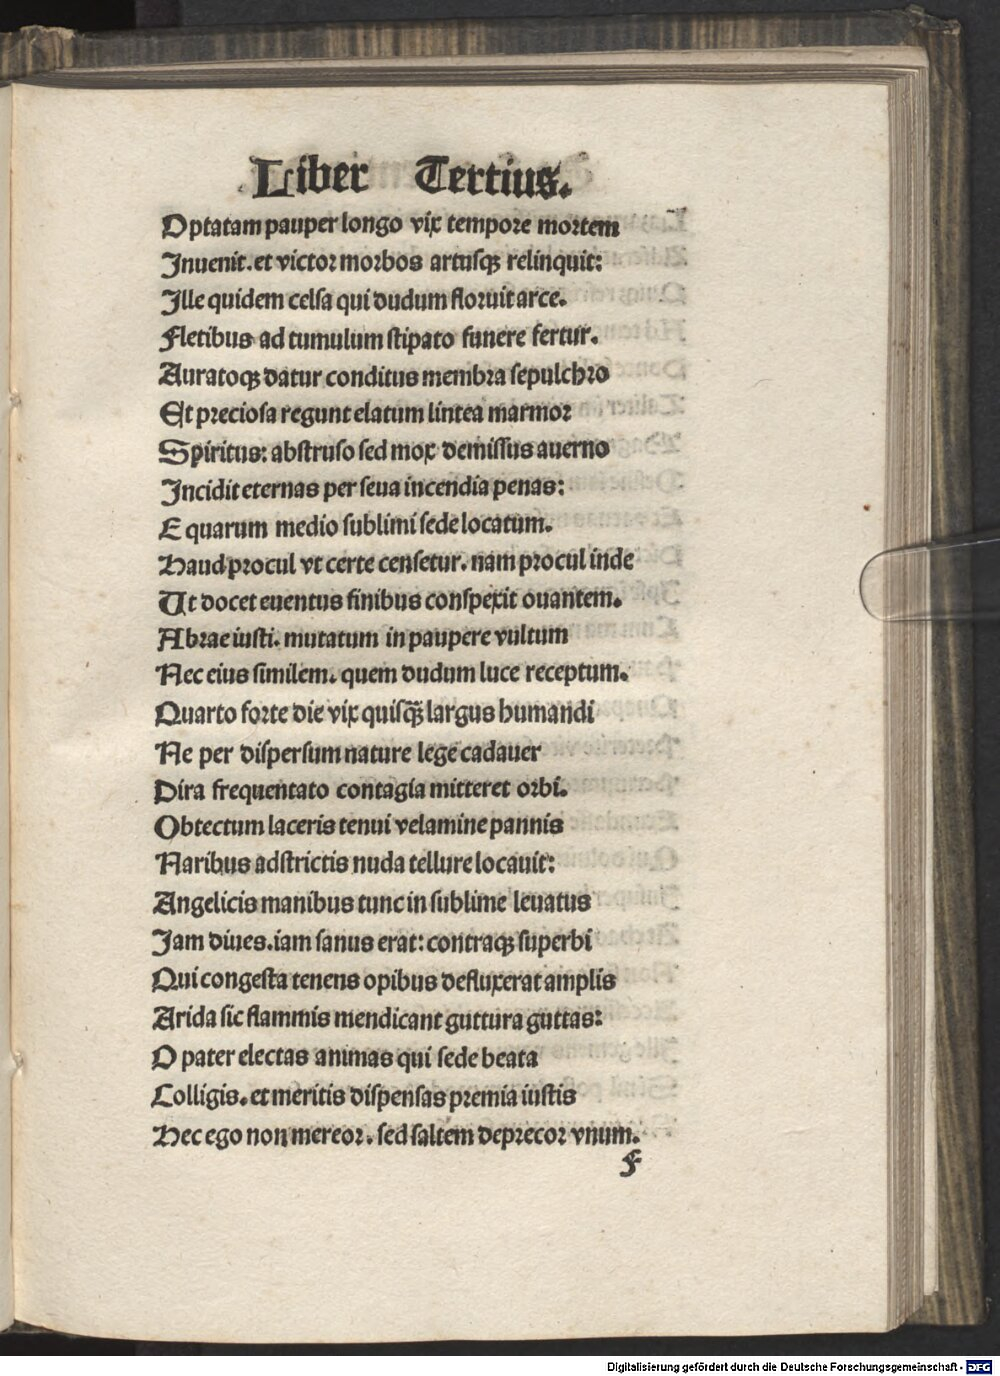 Liber Tertius.
Optatam pauper longo vix tempore mortem
Inuenit. et victor morbos artusqꝫ relinquit:
Ille quidem celsa qui dudum floruit arce.
Fletibus ad tumulum stipato funere fertur.
Auratoqꝫ datur conditus membra sepulchro
Et preciosa regunt elatum lintea marmor
Spiritus: abstruso sed mox demissus auerno
Incidit eternas per seua incendia penas:
E quarum medio sublimi sede locatum.
Haud procul vt certe censetur. nam procul inde
Ut docet euentus finibus conspexit ouantem.
Abrae iusti. mutatum in paupere vultum
Nec eius similem. quem dudum luce receptum.
Quarto forte die vix quisqꝫ̃ largus humandi
Ne per dispersum nature lege cadauer
Dira frequentato contagia mitteret orbi.
Obtectum laceris tenui velamine pannis
Naribus adstrictis nuda tellure locauit:
Angelicis manibus tunc in sublime leuatus
Iam diues. iam sanus erat: contraqꝫ superbi
Qui congesta tenens opibus defluxerat amplis
Arida sic flammis mendicant guttura guttas:
O pater electas animas qui sede beata
Colligis. et meritis dispensas premia iustis
Hec ego non mereor. sed saltem deprecor vnum.
f
Digitalisierung gefördert durch die Deutsche Forschungsgemeinschaft - DFG